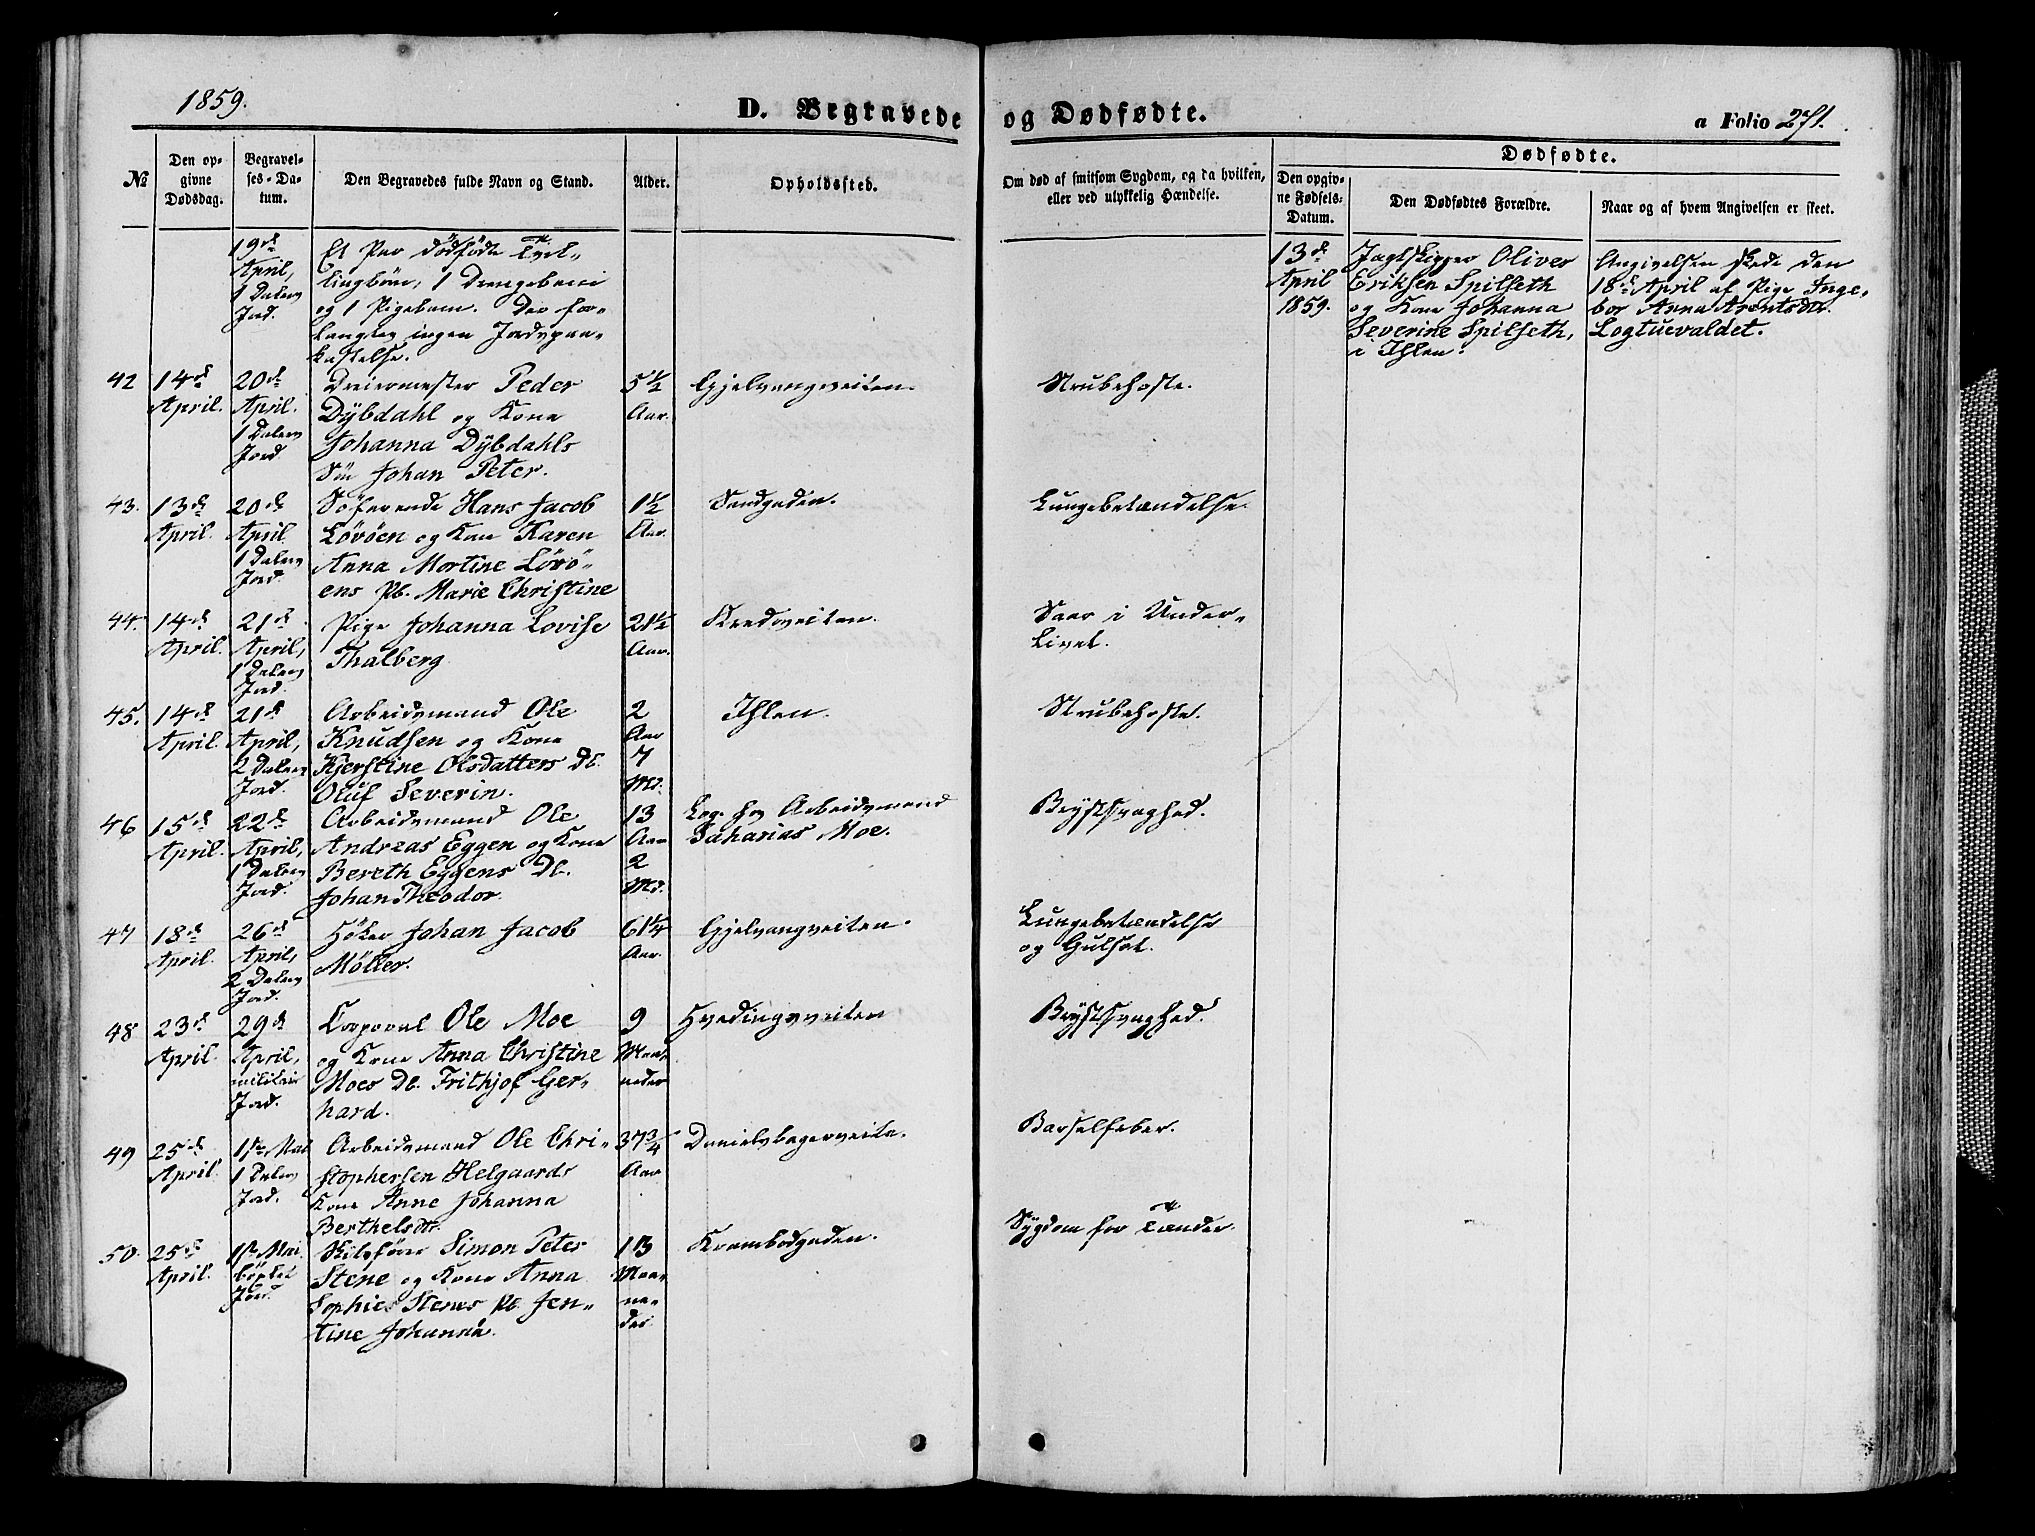 1859.
D. Begravede og Dødfødte.
a Folio 271.
№
Den opgivne Dødsdag.
Begravelses-Datum.
Den Begravedes fulde Navn og Stand.
Alder.
Opholdssted.
Om død af smitsom Sygdom, og da hvilken,
eller ved ulykkelig Hændelse.
Dødfødte.
Den opgivne Fødsels-Datum.
Den Dødfødtes Forældre.
Naar og af hvem Angivelsen er skeet.
19de April, 1 Dalers Jord.
Et Par dödfödte Tvil-
lingbörn, 1 Drengebarn
og 1 Pigebarn. Der for-
langtes ingen Jordspaa-
kastelse.
13de April 1859.
Jagtskipper Oliver
Eriksen Spilseth
og Kone Johanna
Severine Spilseth,
i Ihlen.
Angivelsen skede den
18de April af Pige Inge-
bor Anna Arentsdtr.
Logtuevaldet.
42 14de April. 20de April. 1 Dalers Jord.
Dreiermester Peder
Dÿbdahl og Kone
Johanna Dÿbdahls
Sön Johan Peter.
5½ Aar.
Gjelvangveiten.
Strubehoste.
43. 13de April. 20de April 1 Dalers Jord.
Söfarende Hans Jacob
Lövöen og Kone Karen
Anna Martine Lövö-
ens Pb. Marie Christine
1½ Aar.
Sandgaden.
Lungebetændelse.
44. 14de April. 21de April, 1 Dalers Jord.
Pige Johanna Lovise
Thalberg
21½ Aar.
Saar i Under-
livet.
45. 14de April. 21de April, 2 Dalers Jord.
Arbeidsmand Ole
Knudsen og Kone
Kjerstine Olsdatters Db.
Oluf Severin.
2 Aar 7 Md.
Ihlen.
Strubehoste.
46 15de April. 22de April, 1 Dalers Jord.
Arbeidsmand Ole
Andreas Eggen og Kone
Bereth Eggens Db.
Johan Theodor.
13 Aar 2 Md.
Log. hos Arbeidsmand
Zakarias Moe.
Brÿstsvaghed.
47 18de April. 26de April, 2 Dalers Jord.
Höker Johan Jacob
Möller.
61¼ Aar.
Gjelvangveiten.
Lungebetændelse
og Gulsot.
48 23de April. 29de April, militair Jord.
Corporal Ole Moe
og Kone Anna Christine
Moes Db. Frithjof Ger-
hard.
9 Maaneder
Hvedingsveiten
Brÿstsvaghed.
49 25de April. 1ste Mai 1 Dalers Jord.
Arbeidsmand Ole Chri-
stophersen Helgaards
Kone Anne Johanna
Berthelsdtr.
37¾ Aar
Danielsbagerveite.
Barselfeber.
50. 25de April. 1ste Mai Jord.
Simon Peter
Stene og Kone Anna
Sophies Stenes Pb. Jen-
tine Johanna.
13 Maaneder.
Krambodgaden.
Sÿgdom for Tænder.